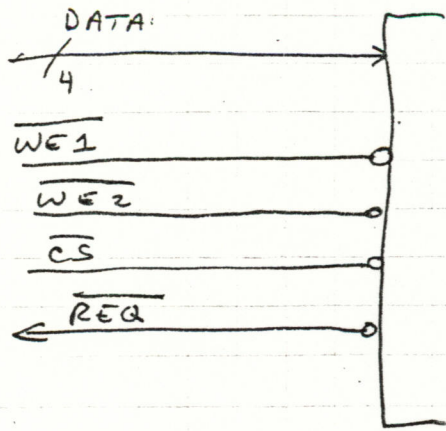 DATA
4
WE1
WE2
CS
REQ